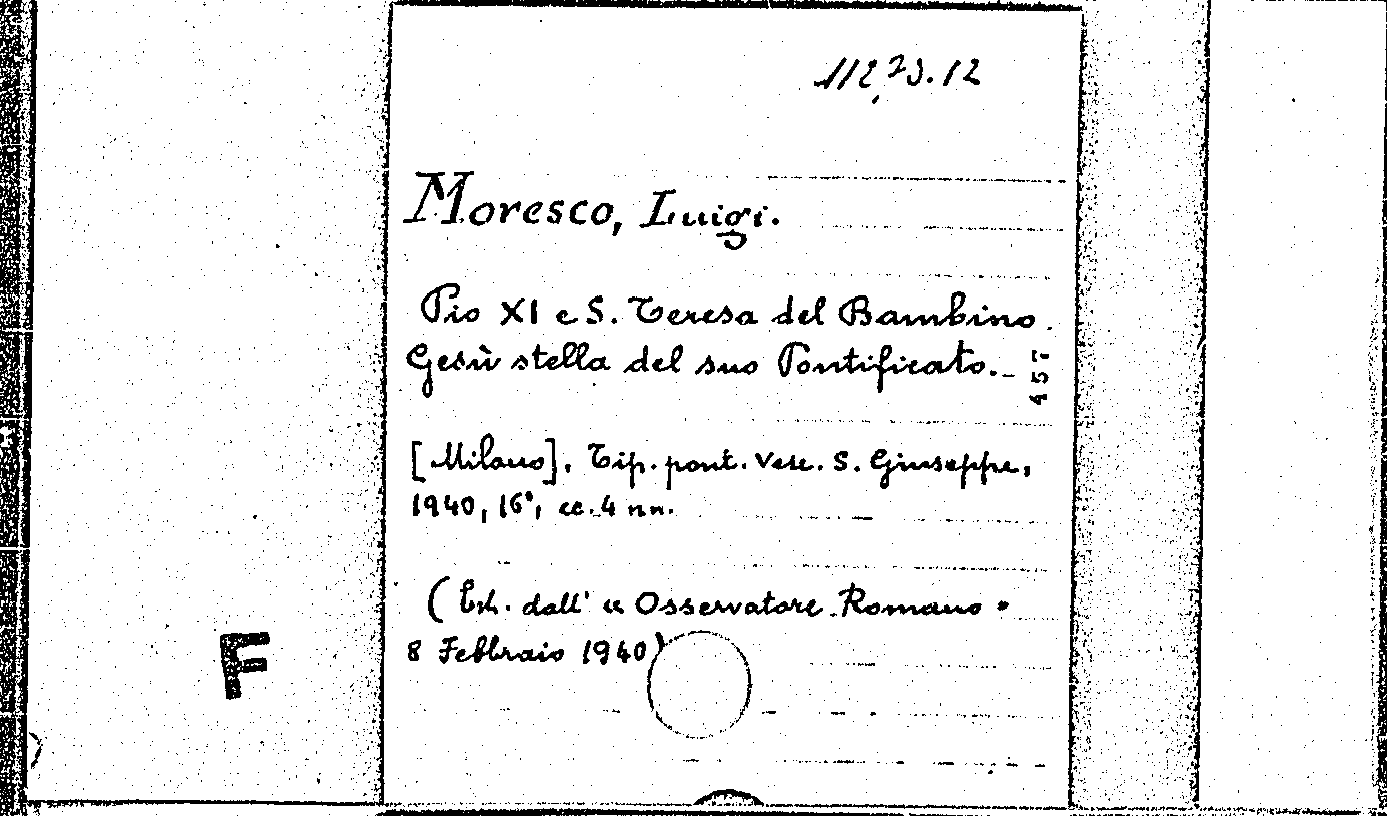 Moresco, Luigi.
Pio XI e S. Teresa del Bambino
Gesù stella del suo Pontificato.-
457
[Milano], Tip. pont. Vesc. S. Giuseppe,
1940, 16°, cc. 4 nn.
(Est. dall' « Osservatore Romano »
8 Febbraio 1940)
F